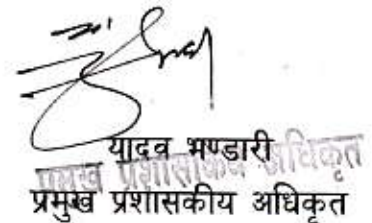 यादव भण्डारी
प्रमुख प्रशासकीय अधिकृत
प्रमुख प्रशासकीय अधिकृत